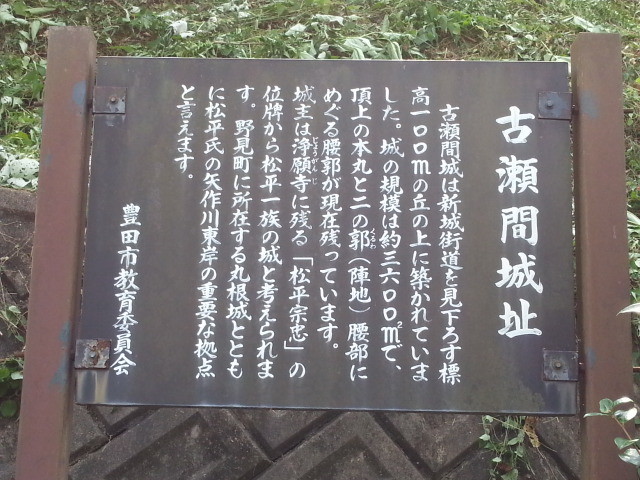 古瀬間城址
古瀬間城は新城街道を見下ろす標
高一〇〇mの丘の上に築かれていま
した。城の規模は約三六〇〇m²で、
頂上の本丸と二の郭(くるわ)(陣地)腰部に
めぐる腰郭が現在残っています。
城主は浄願寺(じょうがんじ)に残る「松平宗忠」の
位牌から松平一族の城と考えられま
す。野見町に所在する丸根城ととも
に松平氏の矢作川東岸の重要な拠点
と言えます。
豊田市教育委員会